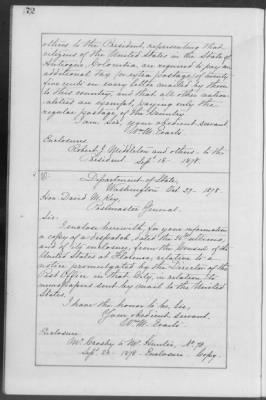 72
others to the President, representing that
citizens of the United States in the State of
Antioquia, Colombia, are required to pay an
additional tax for extra postage, of twenty
five cents on every letter mailed by them
to this country, and that all other nation
alities are exempt, paying only the
regular postage, of the Country.
I am, Sir, Your obedient servant
Wm M. Evarts
Enclosure
Robert J. Middleton and others, to the
President Sept 18 - 1878.
Department of State,
Washington Oct 29 - 1878.
Hon David M. Key,
Postmaster General.
Sir:
I enclose herewith, for your information
a copy of a despatch, dated the ultimo,
and of its enclosure, from the Consul of the
United States at Florence, relative to a
notice promulgated by the Director of the
Post Office in that City, in relation to
newspapers sent by mail to the United
States.
I have the honor to be, Sir,
Your obedient servant,
Wm M. Evarts
Enclosure
Mr Crosby to Mr Hunter, No 70,
Sept 28 - 1878 - Enclosure - Copy.